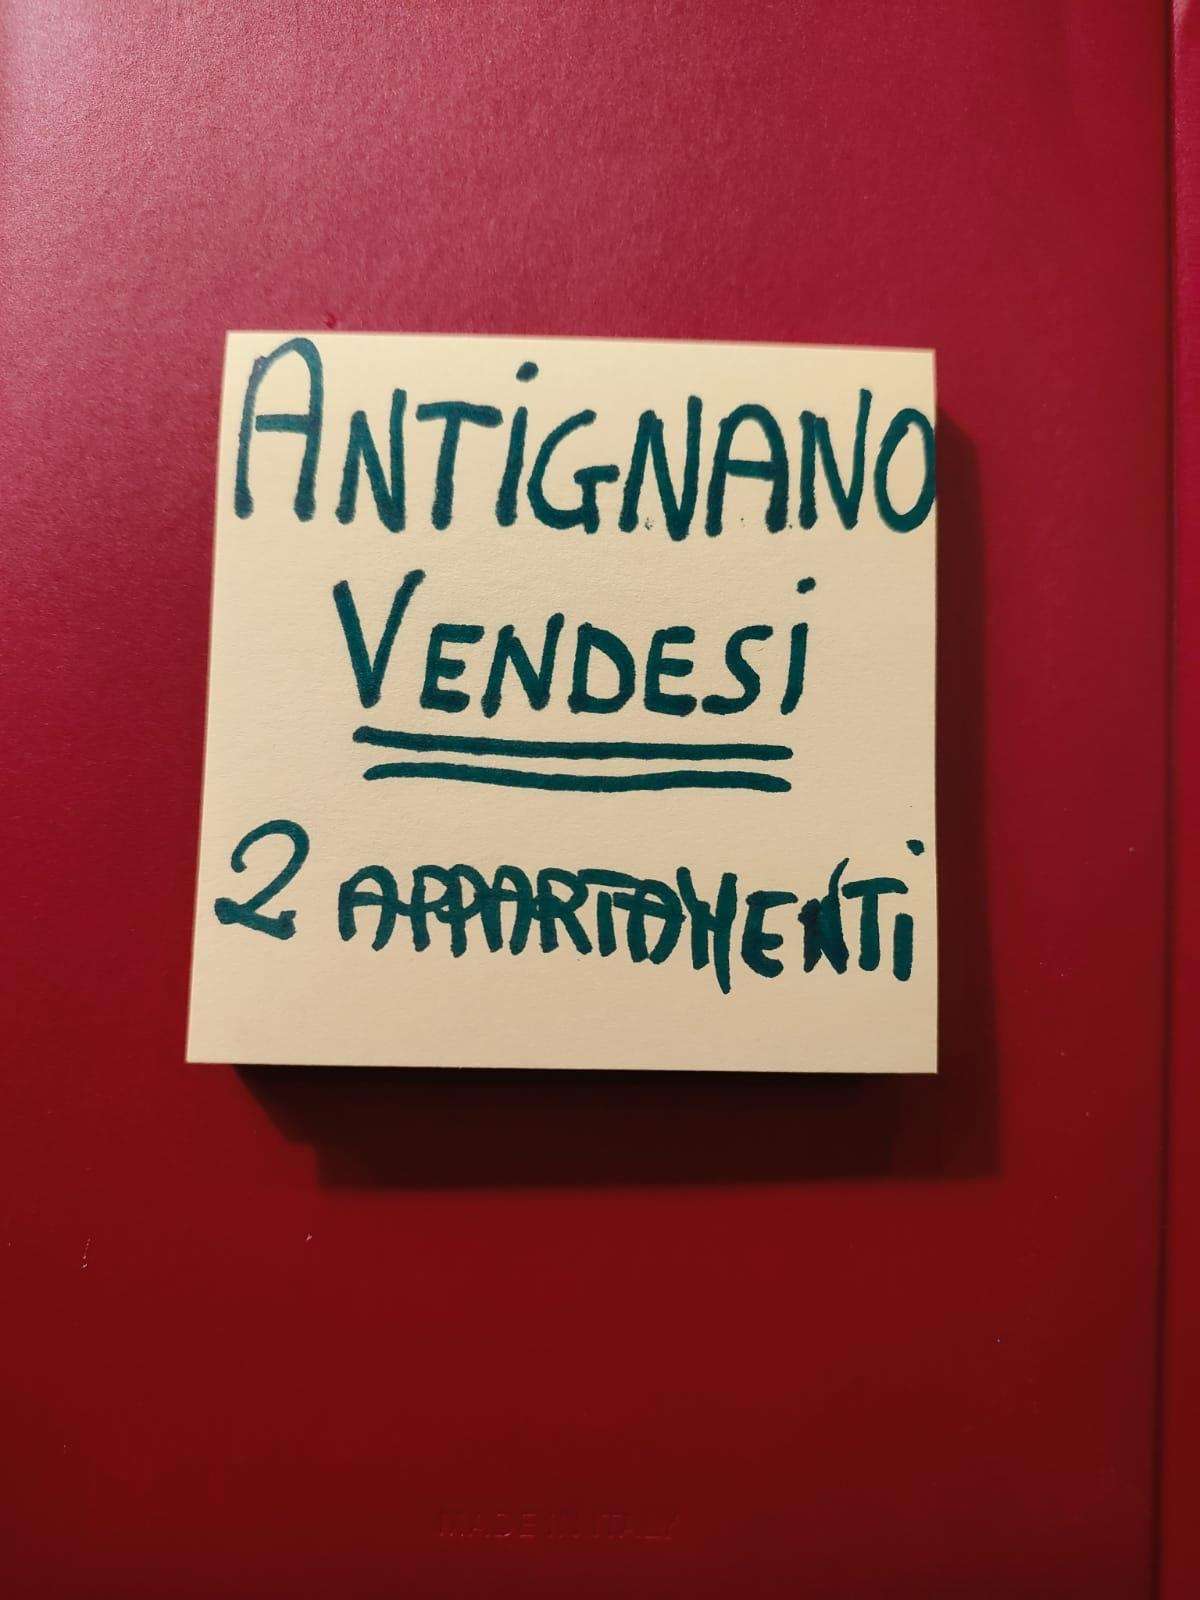 ANTIGNANO
VENDESI
2 APPARTAMENTI
MADE IN ITALY